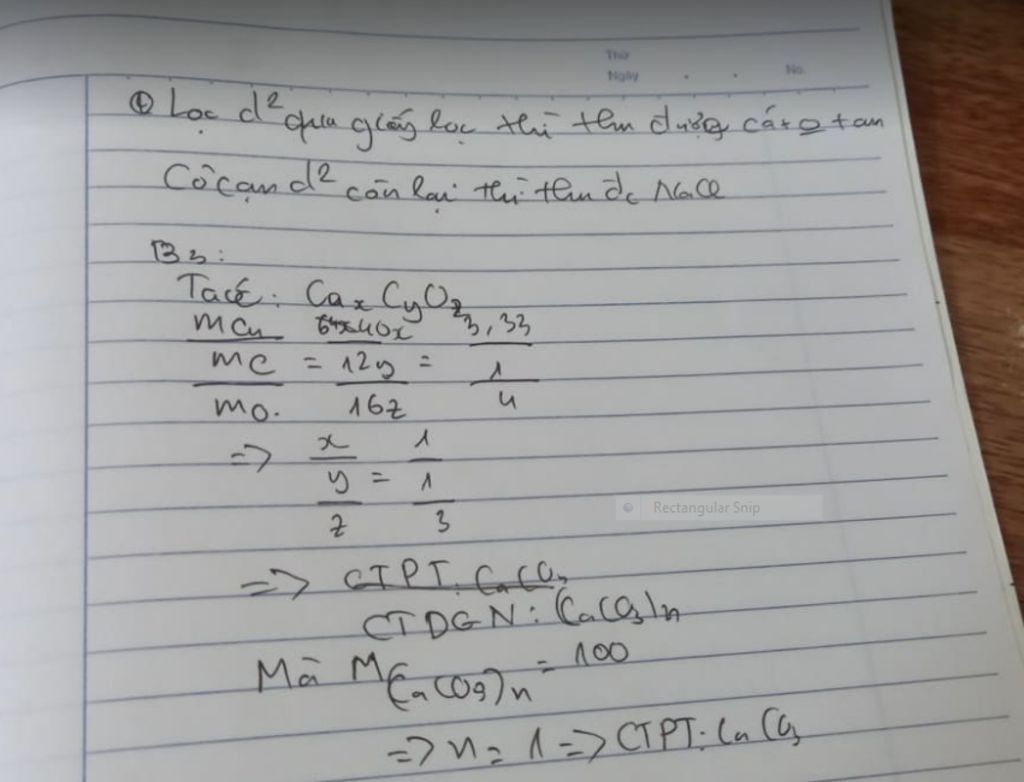 Thứ
Ngày . . No.
+ Lọc d² qua giấy lọc thì thu được cát o tan
Cô cạn d² còn lại thì thu đc NaCl
B3:
Ta có: CaxCyOz
mCu 64x40x 3,33
mC = 12y = 1
mO. 16z 4
=> x 1
y = 1
z 3
=> CTPT: CaCO3
CTDGN: (CaCO3)n
Mà M(CaCO3)n = 100
=> n = 1 => CTPT: CaCO3
Rectangular Snip